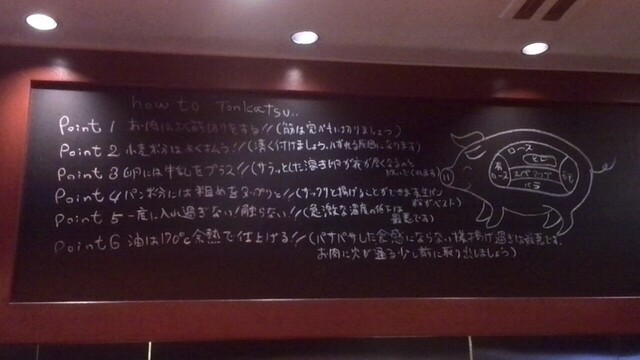 how to Tonkatsu..
Point 1 お肉は 筋切りをする!! (筋は 切りましょう)
Point 2 小麦粉はよくはらう!! (薄く付けましょう、 原因になります)
Point 3 卵には牛乳をプラス!! (サラッとした溶き卵が
Point 4 パン粉には粗めをたっぷりと!! (サックリと揚げることができる 生パン
粉がベスト)
Point 5 一度に入れ過ぎない!触らない!! (急激な温度の低下は
厳禁です)
Point 6 油は170℃余熱で仕上げる!! (パサパサした食感にならない様揚げ過ぎは厳禁です。
お肉に火が通る少し前に取り出しましょう)
ロース
ヒレ
肩ロース
スペアリブ
バラ
モモ